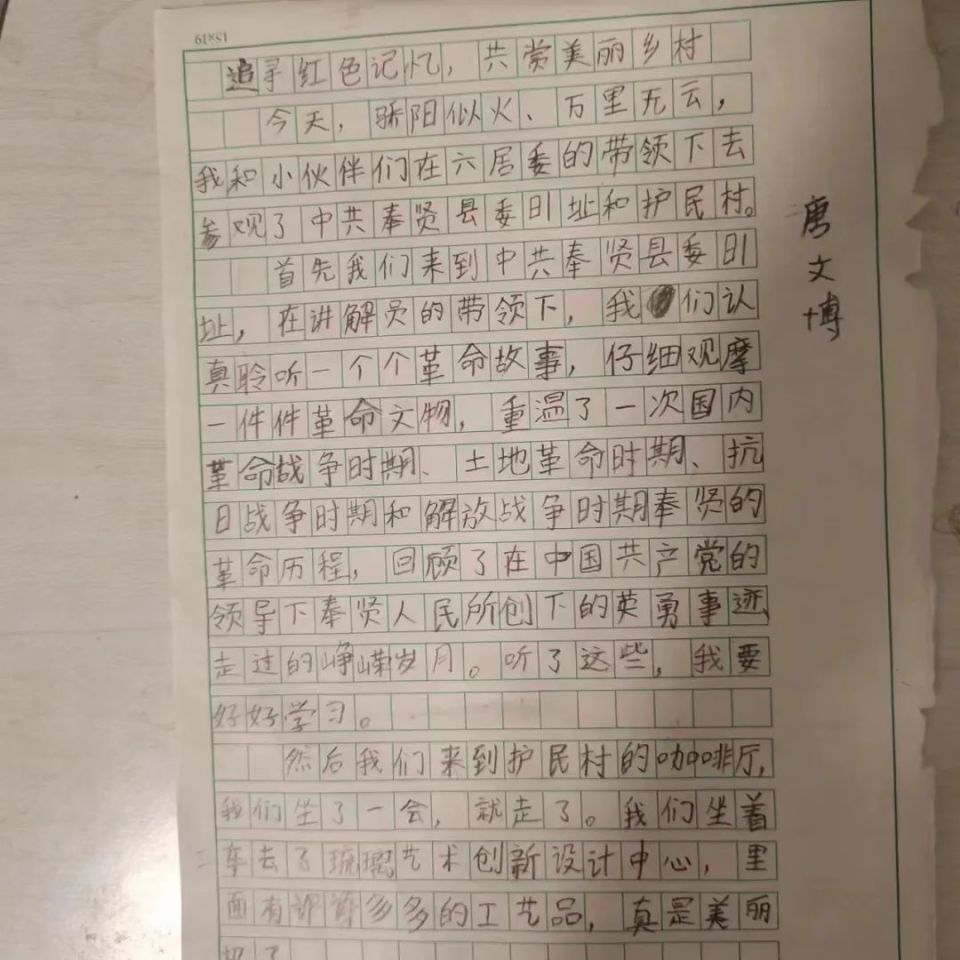 15×19
追寻红色记忆，共赏美丽乡村
今天，骄阳似火、万里无云，
我和小伙伴们在六居委的带领下去
参观了中共奉贤县委旧址和护民村。
首先我们来到中共奉贤县委旧
址，在讲解员的带领下，我们认
真聆听一个个革命故事，仔细观摩
一件件革命文物，重温了一次国内
革命战争时期、土地革命时期、抗
日战争时期和解放战争时期奉贤的
革命历程，回顾了在中国共产党的
领导下奉贤人民所创下的英勇事迹
走过的峥嵘岁月。听了这些，我要
好好学习。
然后我们来到护民村的咖啡厅，
我们坐了一会，就走了。我们坐着
车去了琉璃艺术创新设计中心，里
面有许许多多的工艺品，真是美丽
极了
唐文博